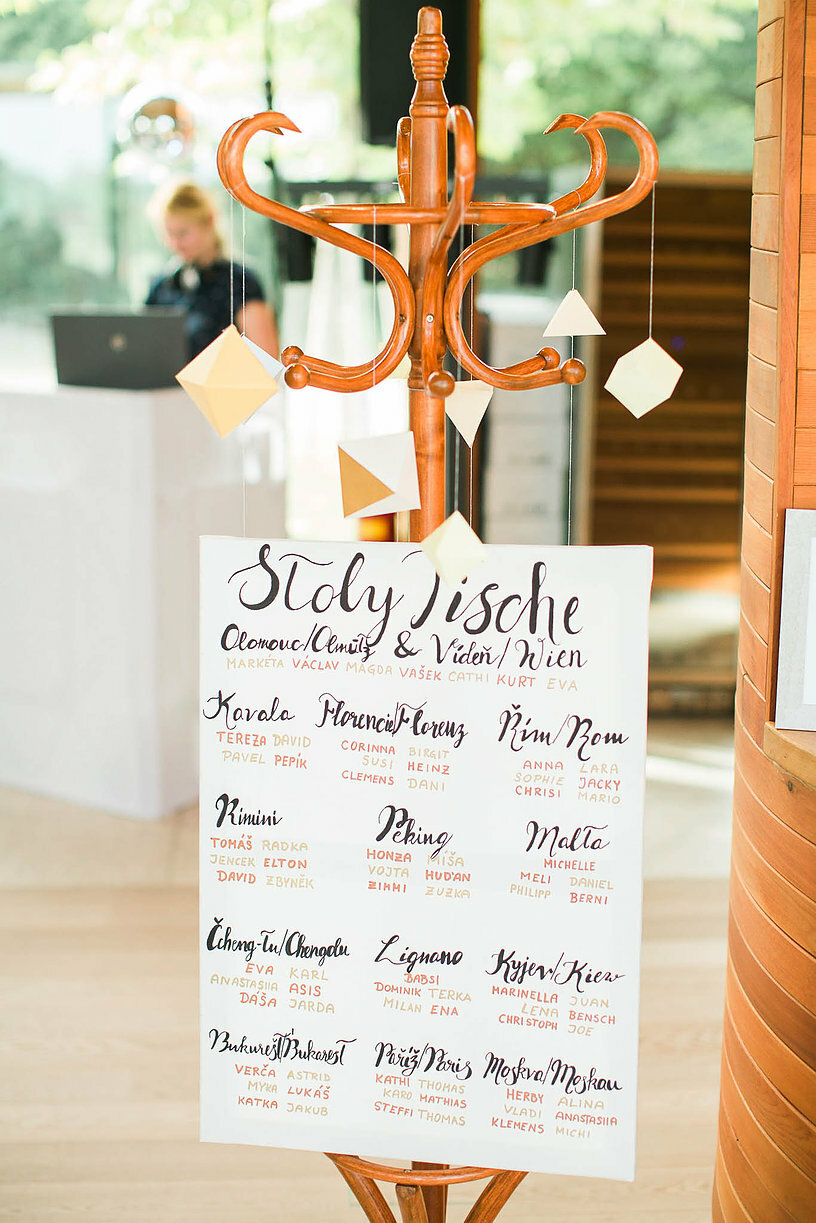 Stoly Tische
Olomouc/Olmütz & Vídeň/Wien
MARKÉTA VÁCLAV MAGDA VAŠEK CATHI KURT EVA
Kavala
TEREZA DAVID
PAVEL PEPÍK
Florencie/Florenz
CORINNA BIRGIT
SUSI HEINZ
CLEMENS DANI
Řím/Rom
ANNA LARA
SOPHIE JACKY
CHRISI MARIO
Rimini
TOMÁŠ RADKA
JENCEK ELTON
DAVID ZBYNĚK
Peking
HONZA MÍŠA
VOJTA HUĎAN
ZIMMI ZUZKA
Malta
MICHELLE
MELI DANIEL
PHILIPP BERNI
Čcheng-Tu/Chengdu
EVA KARL
ANASTASIIA ASIS
DÁŠA JARDA
Lignano
BABSI
DOMINIK TERKA
MILAN ENA
Kyjev/Kiew
MARINELLA JUAN
LENA BENSCH
CHRISTOPH JOE
Bukurešť/Bukarest
VERČA ASTRID
MYKA LUKÁŠ
KATKA JAKUB
Paříž/Paris
KATHI THOMAS
KARO MATHIAS
STEFFI THOMAS
Moskva/Moskau
HERBY ALINA
VLADI ANASTASIIA
KLEMENS MICHI